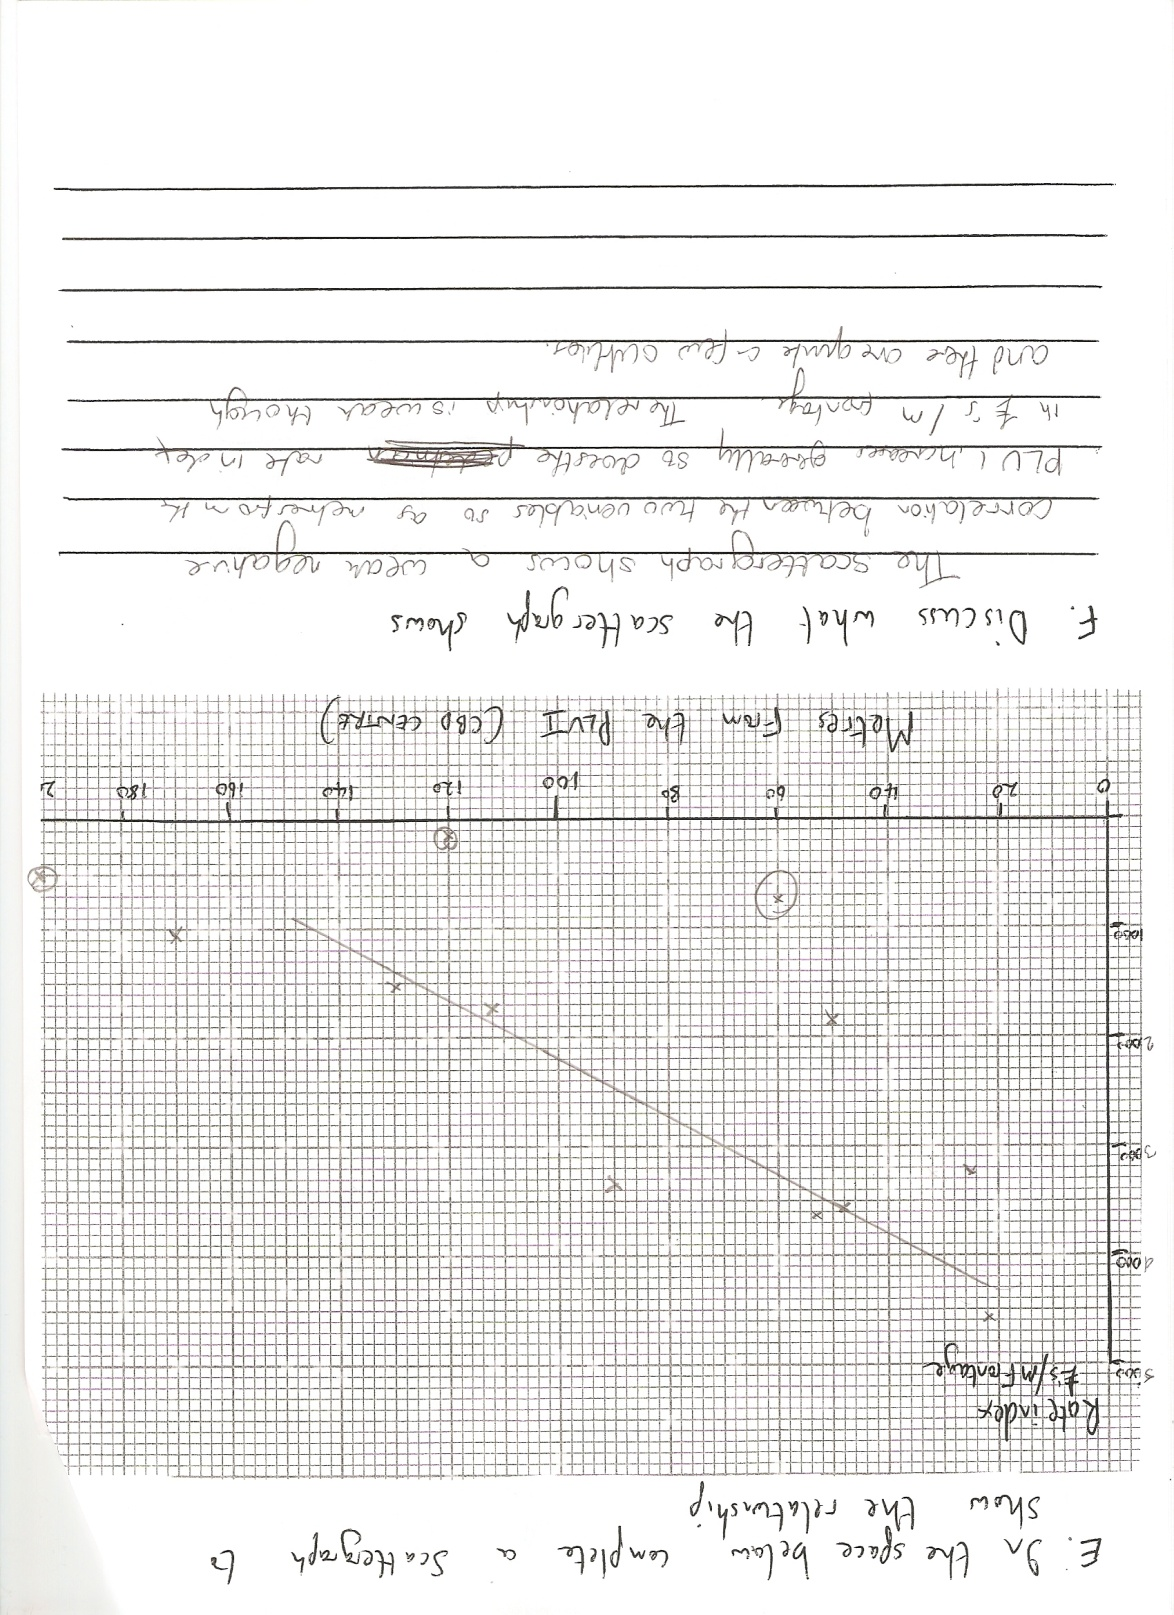 E. In the space below complete a scattergraph to
show the relationship
Rate index
£'s/M Frontage
5000
4000
3000
2000
1000
0 20 40 60 80 100 120 140 160 180 2
Metres from the PLVI (CBD CENTRE)
F. Discuss what the scattergraph shows
The scattergraph shows a weak negative
correlation between the two variables so as metres from the
PLVI increases generally so does the rate index
in £'s/m frontage. The relationship is weak though
and there are quite a few outliers.